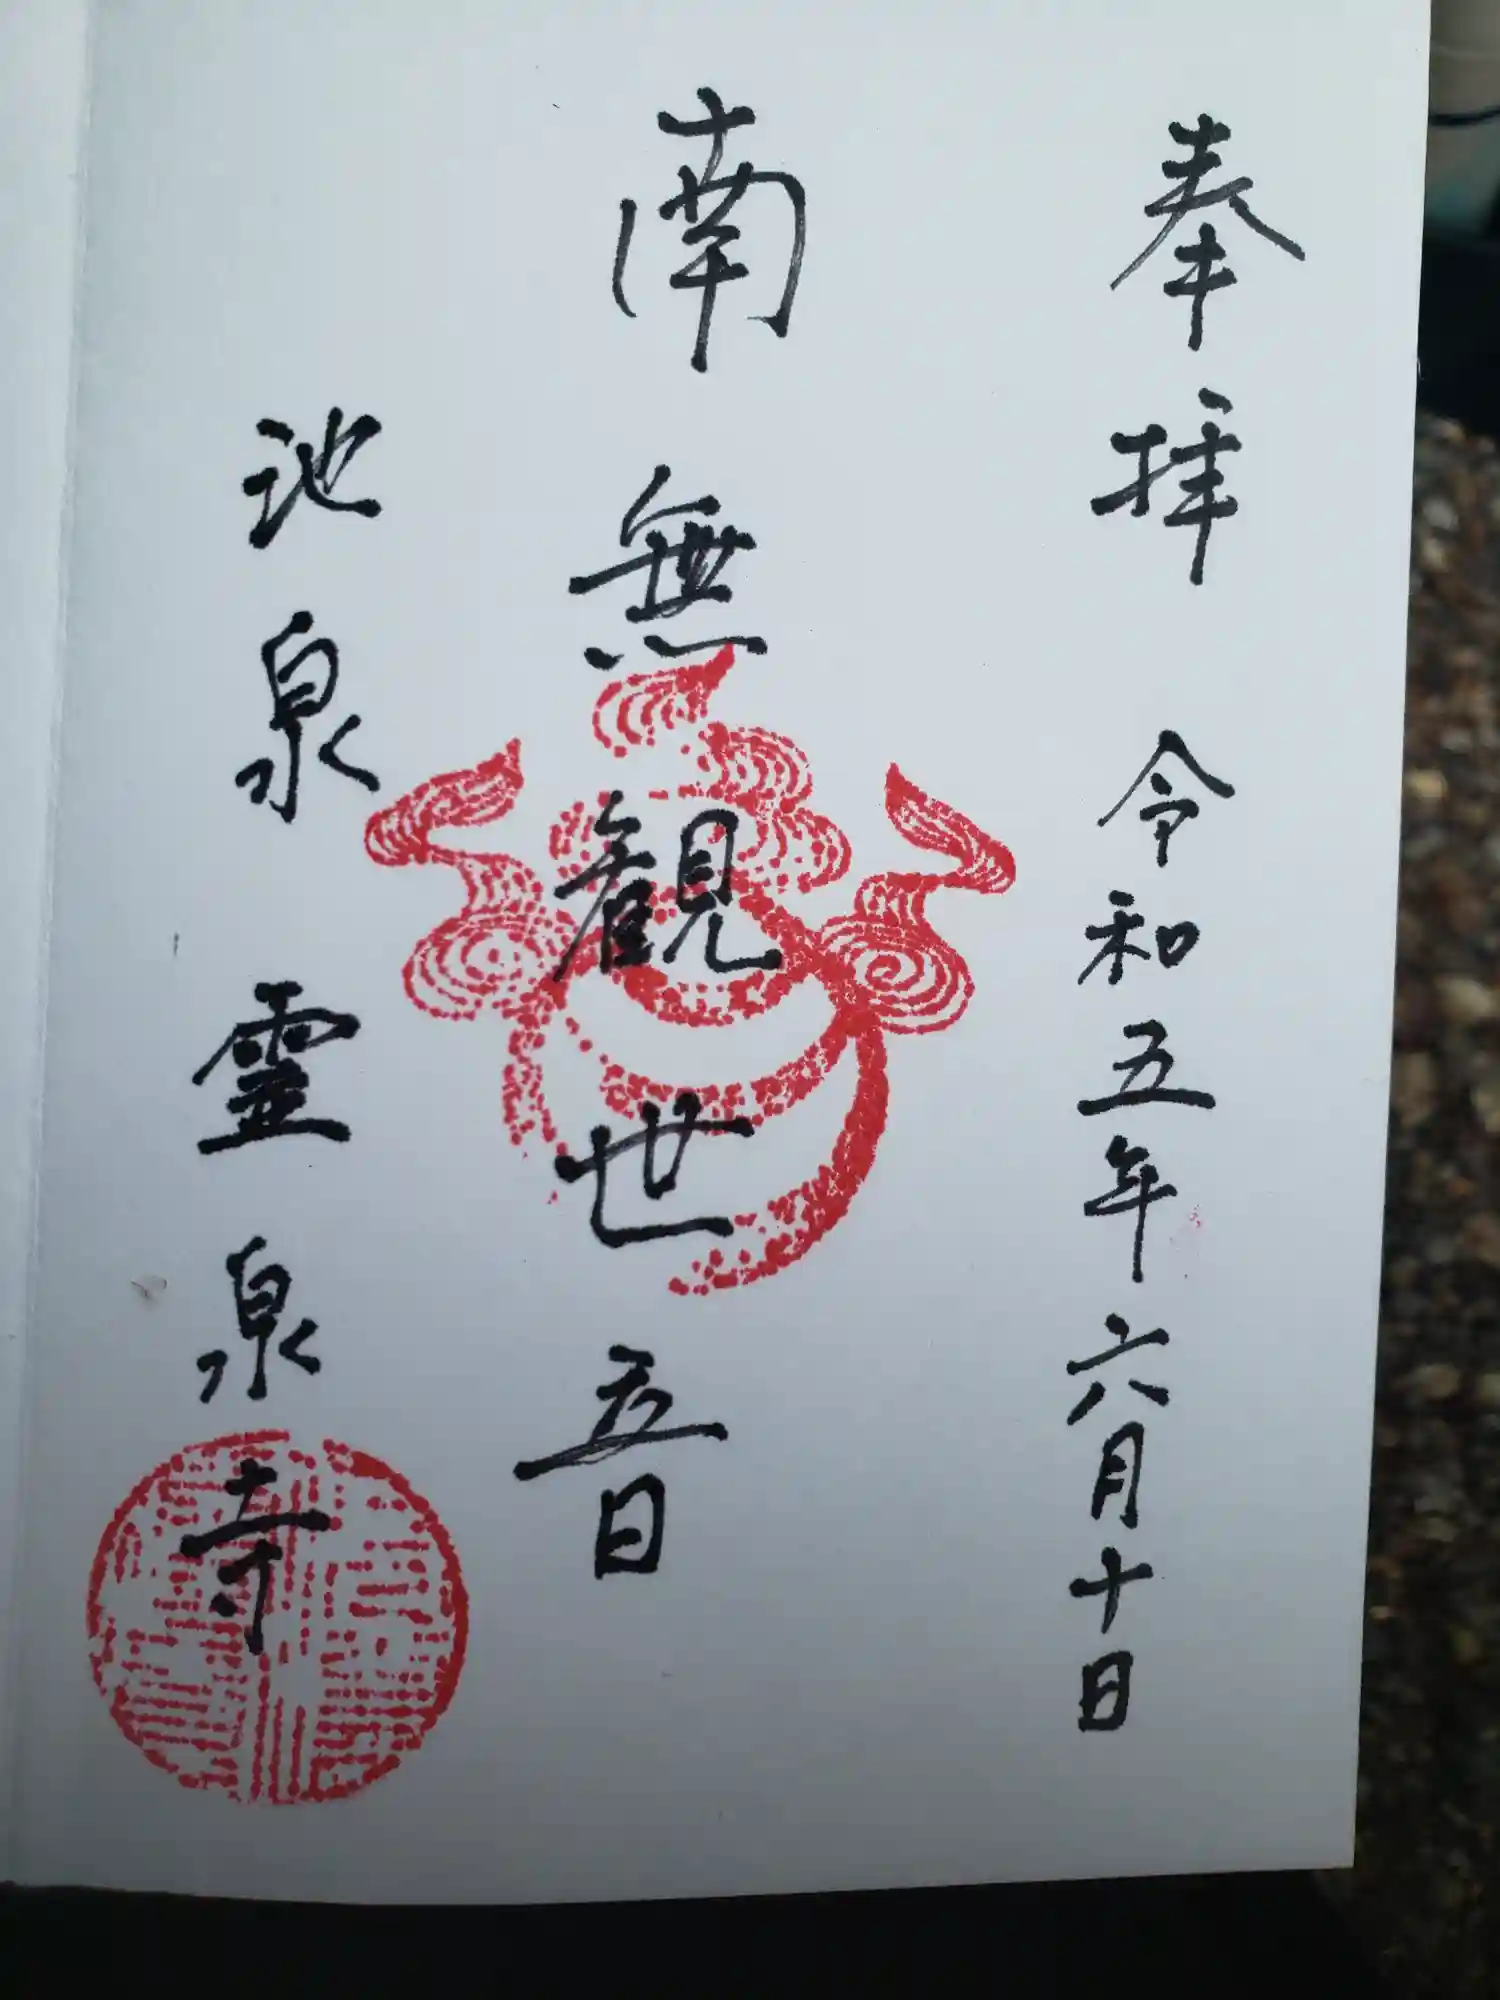 奉拝 令和五年六月十日
南無観世音
池泉霊泉寺